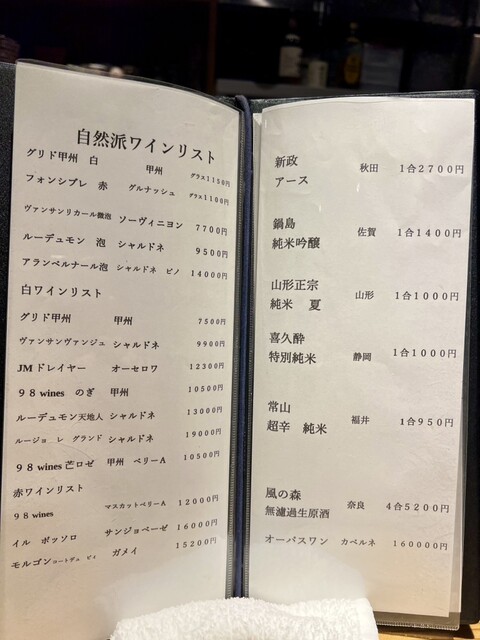 自然派ワインリスト
グリド甲州 白 甲州 グラス1150円
フォンシプレ 赤 グルナッシュ グラス1100円
ヴァンサンリカール微泡 ソーヴィニヨン 7700円
ルーデュモン 泡 シャルドネ 9500円
アランベルナール泡 シャルドネ ピノ 14000円
白ワインリスト
グリド甲州 甲州 7500円
ヴァンサンヴァンジュ シャルドネ 9900円
JMドレイヤー オーセロワ 12300円
98wines のぎ 甲州 10500円
ルーデュモン天地人 シャルドネ 13000円
ルージョ レ グランド シャルドネ 19000円
98wines芒ロゼ 甲州 ベリーA 10500円
赤ワインリスト
98wines マスカットベリーA 12000円
イル ボッソロ サンジョベーゼ 16000円
モルゴンコートデュ ピィ ガメイ 15200円
新政
アース 秋田 1合2700円
鍋島
純米吟醸 佐賀 1合1400円
山形正宗
純米 夏 山形 1合1000円
喜久酔
特別純米 静岡 1合1000円
常山
超辛 純米 福井 1合950円
風の森
無濾過生原酒 奈良 4合5200円
オーパスワン カベルネ 160000円